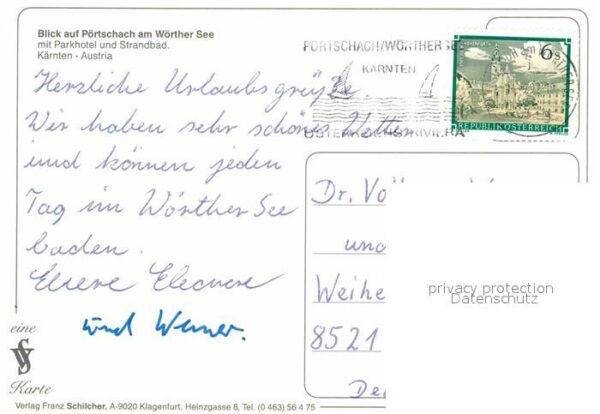 Blick auf Pörtschach am Wörther See
mit Parkhotel und Strandbad.
Kärnten - Austria
PÖRTSCHACH/WÖRTHER SEE
KÄRNTEN
ÖSTERREICHS RIVIERA
6
REPUBLIK ÖSTERREICH
Herzliche Urlaubsgrüße.
Wir haben sehr schönes Wetter
und können jeden
Tag im Wörther See
baden.
Euere Eleonore
und Werner.
Dr. Vo
und
Weihe
8521
privacy protection
Datenschutz
eine
Karte
Verlag Franz Schilcher, A-9020 Klagenfurt, Heinzgasse 8, Tel. (0 463) 56 4 75